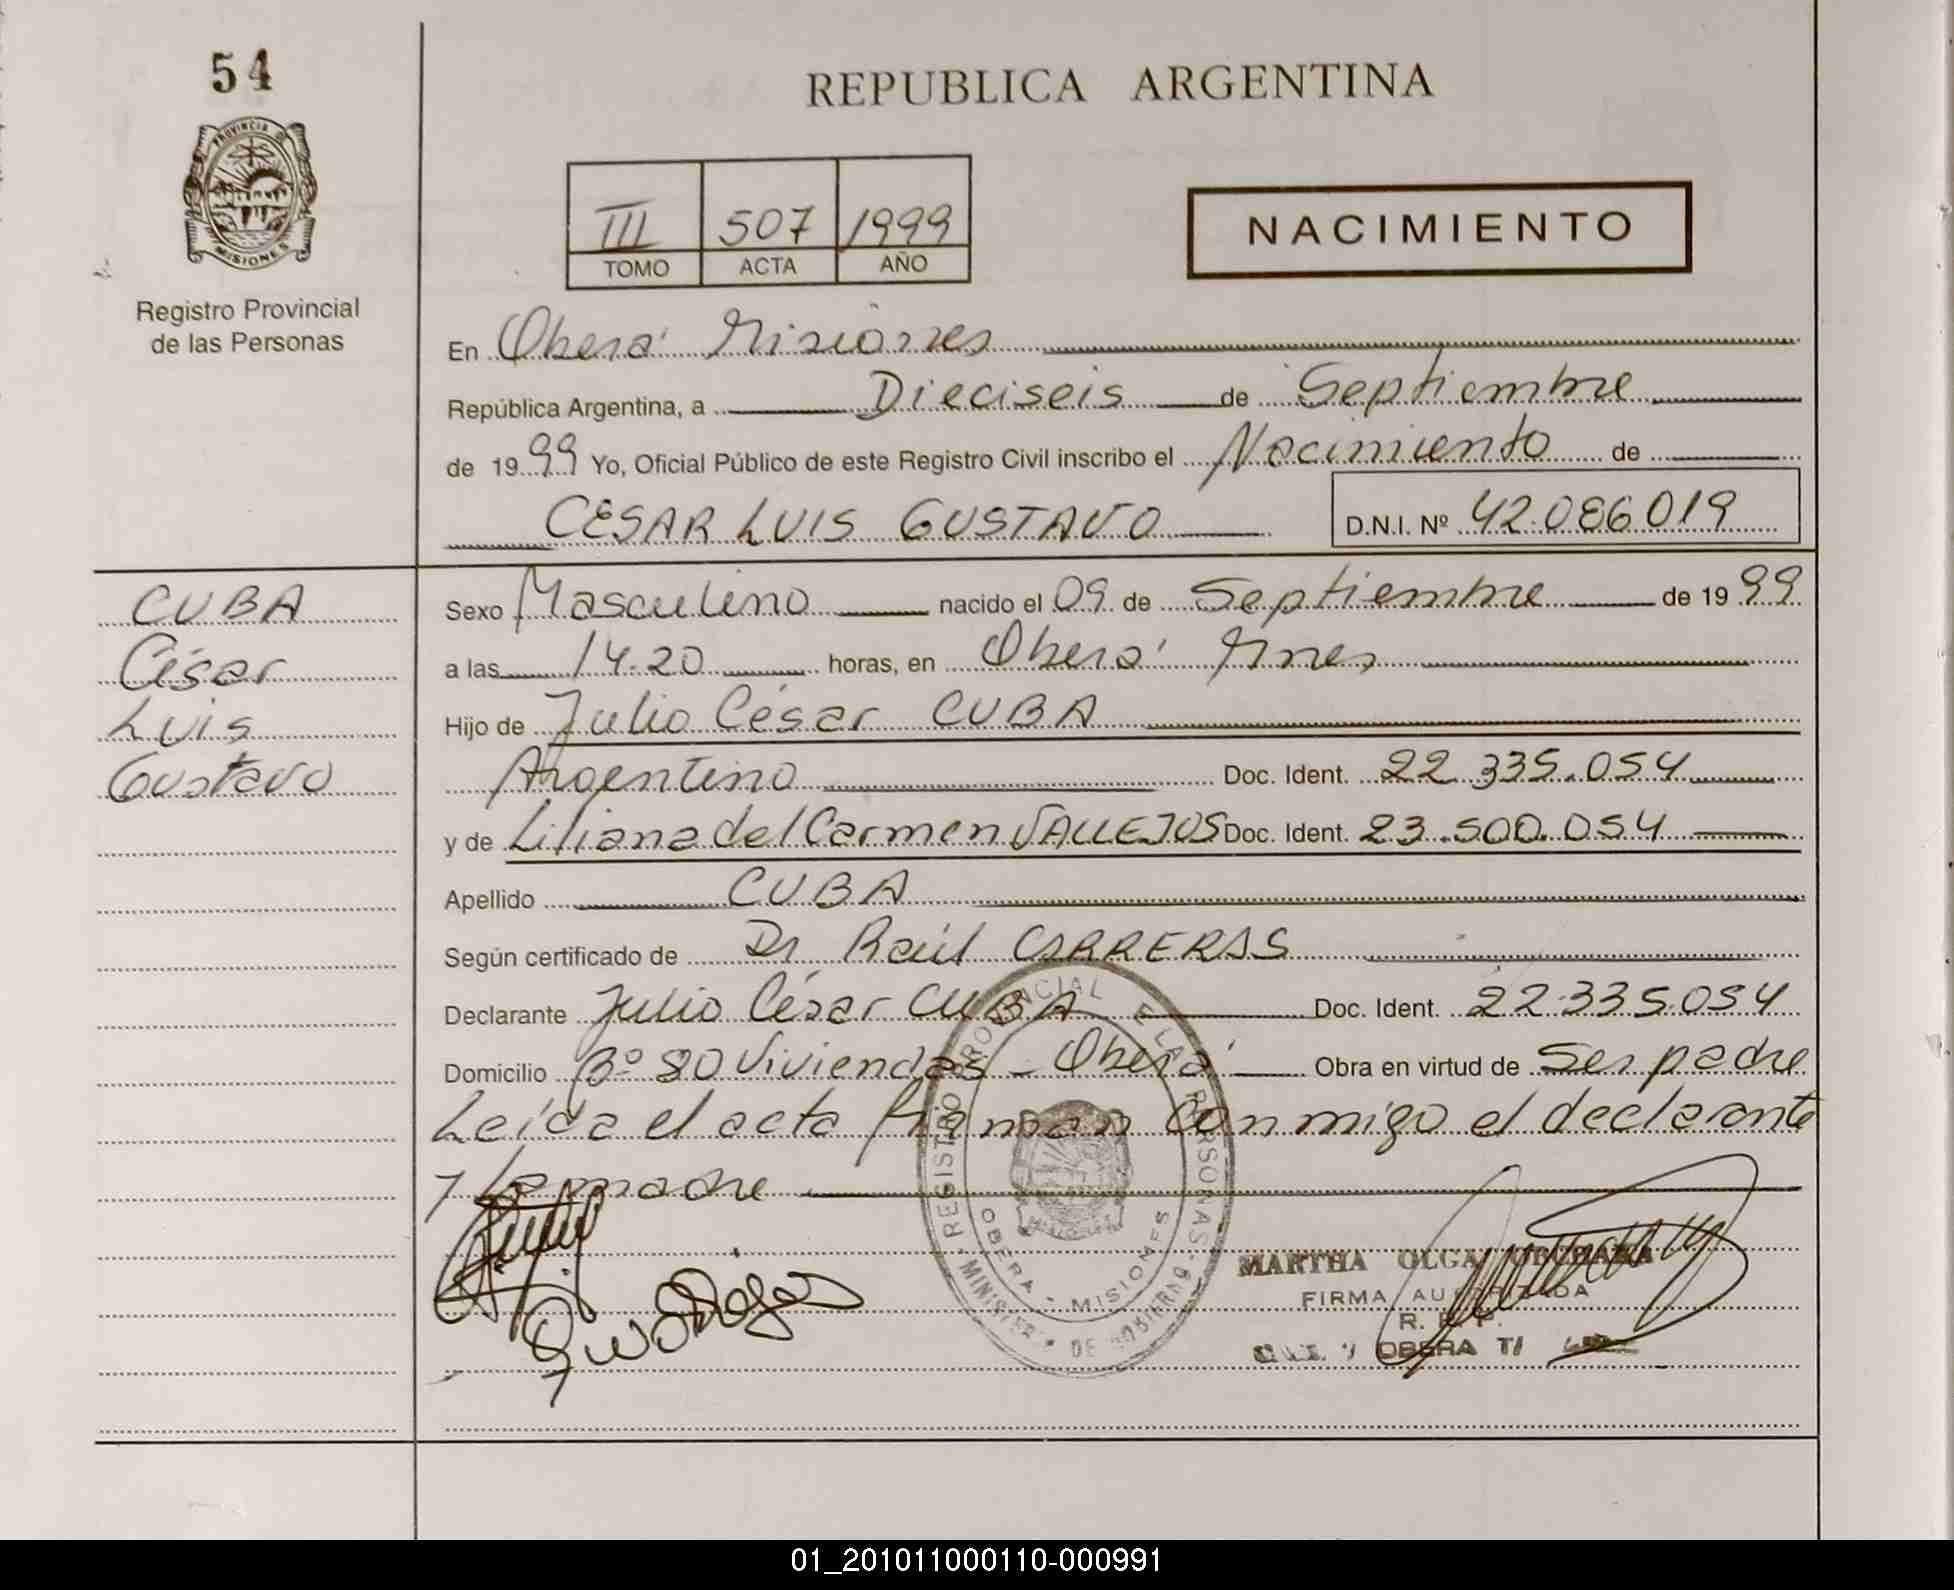 54
REPUBLICA ARGENTINA
PROVINCIA DE
MISIONES
III 507 1999
TOMO ACTA AÑO
NACIMIENTO
Registro Provincial
de las Personas
En Oberá Misiones
República Argentina, a Dieciseis de Septiembre
de 1999 Yo, Oficial Público de este Registro Civil inscribo el Nacimiento de
CÉSAR LUIS GUSTAVO D.N.I. Nº 42.086019
CUBA
César
Luis
Gustavo
Sexo Masculino nacido el 09 de Septiembre de 1999
a las 14.20 horas, en Oberá Mnes
Hijo de Julio César CUBA
Argentino Doc. Ident. 22.335.054
y de Liliana del Carmen VALLEJOS Doc. Ident. 23.500.054
Apellido CUBA
Según certificado de Dr Raúl CARRERAS
Declarante Julio César CUBA Doc. Ident. 22.335.054
Domicilio Bº 80 Viviendas - Oberá Obra en virtud de Ser padre
Leída el acta firman conmigo el declarante
y la madre
REGISTRO PROVINCIAL DE LAS PERSONAS
MINISTERIO DE GOBIERNO
OBERA - MISIONES
MARTHA OLGA
FIRMA AUTORIZADA
R. P. P.
OBERA
01_201011000110-000991